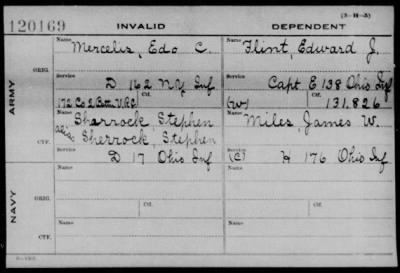 (3-H-5)
120169 INVALID DEPENDENT
ARMY
ORIG.
Name Mercelis, Edo C.
Name Flint, Edward J.
Service D 162 N.Y. Inf
Service Capt E 138 Ohio Inf
172 Co 2 Btn V.R.C. Ctf.
(W) Ctf. 131.826
CTF.
Name Sharrock Stephen
alias Sherrock, Stephen
Name Miles, James W.
Service D 17 Ohio Inf
Service (C) H 176 Ohio Inf
NAVY
ORIG.
Name
Name
Service Ctf.
Service Ctf.
CTF.
Name
Name
Service
Service